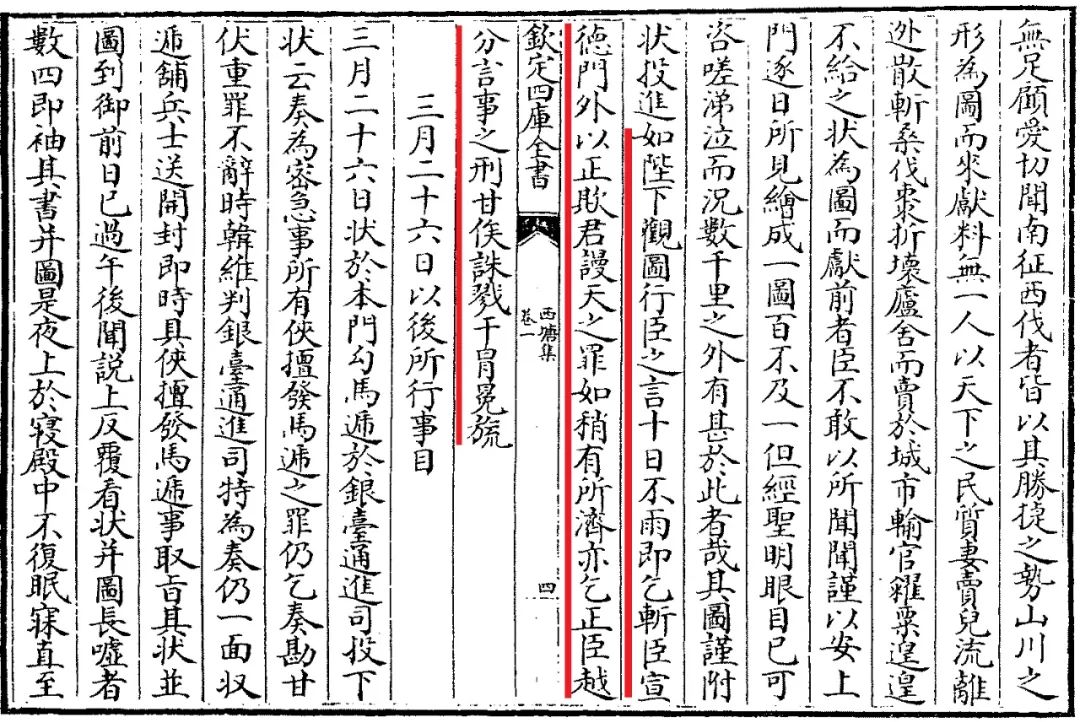 無足顧愛切聞南征西伐者皆以其勝捷之勢山川之
形為圖而來獻料無一人以天下之民質妻賣兒流離
迯散斬桑伐棗折壞廬舍而賣於城市輸官糴粟遑遑
不給之狀為圖而獻前者臣不敢以所聞聞謹以安上
門逐日所見繪成一圖百不及一但經聖明眼目已可
咨嗟涕泣而況數千里之外有甚於此者哉其圖謹附
狀投進如陛下觀圖行臣之言十日不雨即乞斬臣宣
德門外以正欺君謾天之罪如稍有所濟亦乞正臣越
欽定四庫全書
西塘集
卷一
四
分言事之刑甘俟誅戮干冒冕旒
三月二十六日以後所行事目
三月二十六日狀於本門勾馬遞於銀臺通進司投下
狀云奏為密急事所有俠擅發馬遞之罪仍乞奏勘甘
伏重罪不辭時韓維判銀臺通進司特為奏仍一面収
遞舖兵士送開封即時具俠擅發馬遞事取旨其狀並
圖到御前日已過午後聞說上反覆看狀并圖長噓者
數四即袖其書并圖是夜上於寢殿中不復眠寐直至